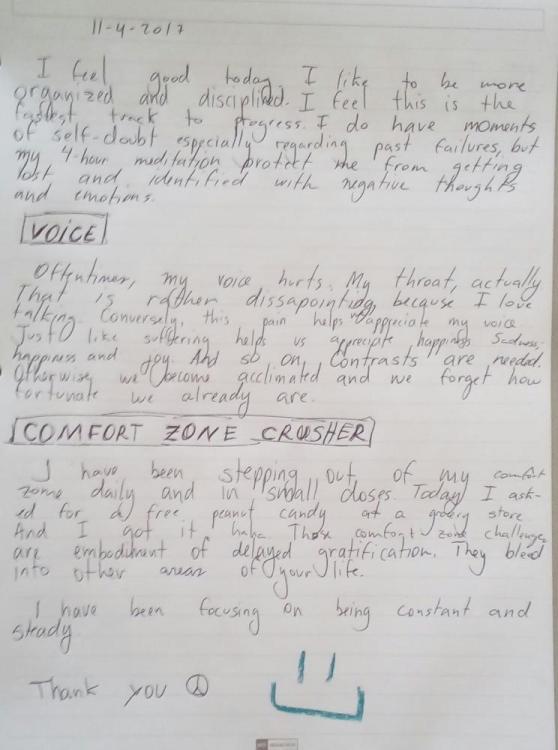 11-4-2017
I feel good today. I like to be more
organized and disciplined. I feel this is the
fastest track to progress. I do have moments
of self-doubt especially regarding past failures, but
my 4-hour meditation protect me from getting
lost and identified with negative thoughts
and emotions.
VOICE
Oftentimes, my voice hurts. My throat, actually
That is rather dissapointing because I love
talking. Conversely, this pain helps me appreciate my voice
Just like suffering helps us appreciate happiness. Sadness,
happiness and joy. And so on. Contrasts are needed.
Otherwise we become acclimated and we forget how
fortunate we already are.
COMFORT ZONE CRUSHER
I have been stepping out of my comfort
zone daily and in small doses. Today I ask-
ed for a free peanut candy at a grocery store
And I got it, haha. These comfort zone challenges
are embodiment of delayed gratification. They bleed
into other areas of your life.
I have been focusing on being constant and
steady
Thank you